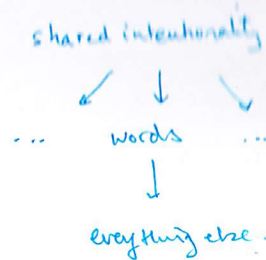 shared intentionality
... words ...
everything else.